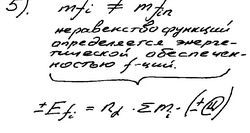 5). mfi ≠ mfn
неравенство функций
определяется энерге-
тической обеспечен-
ностью f-ций.
±Efi = nα · Σmi · (±@)